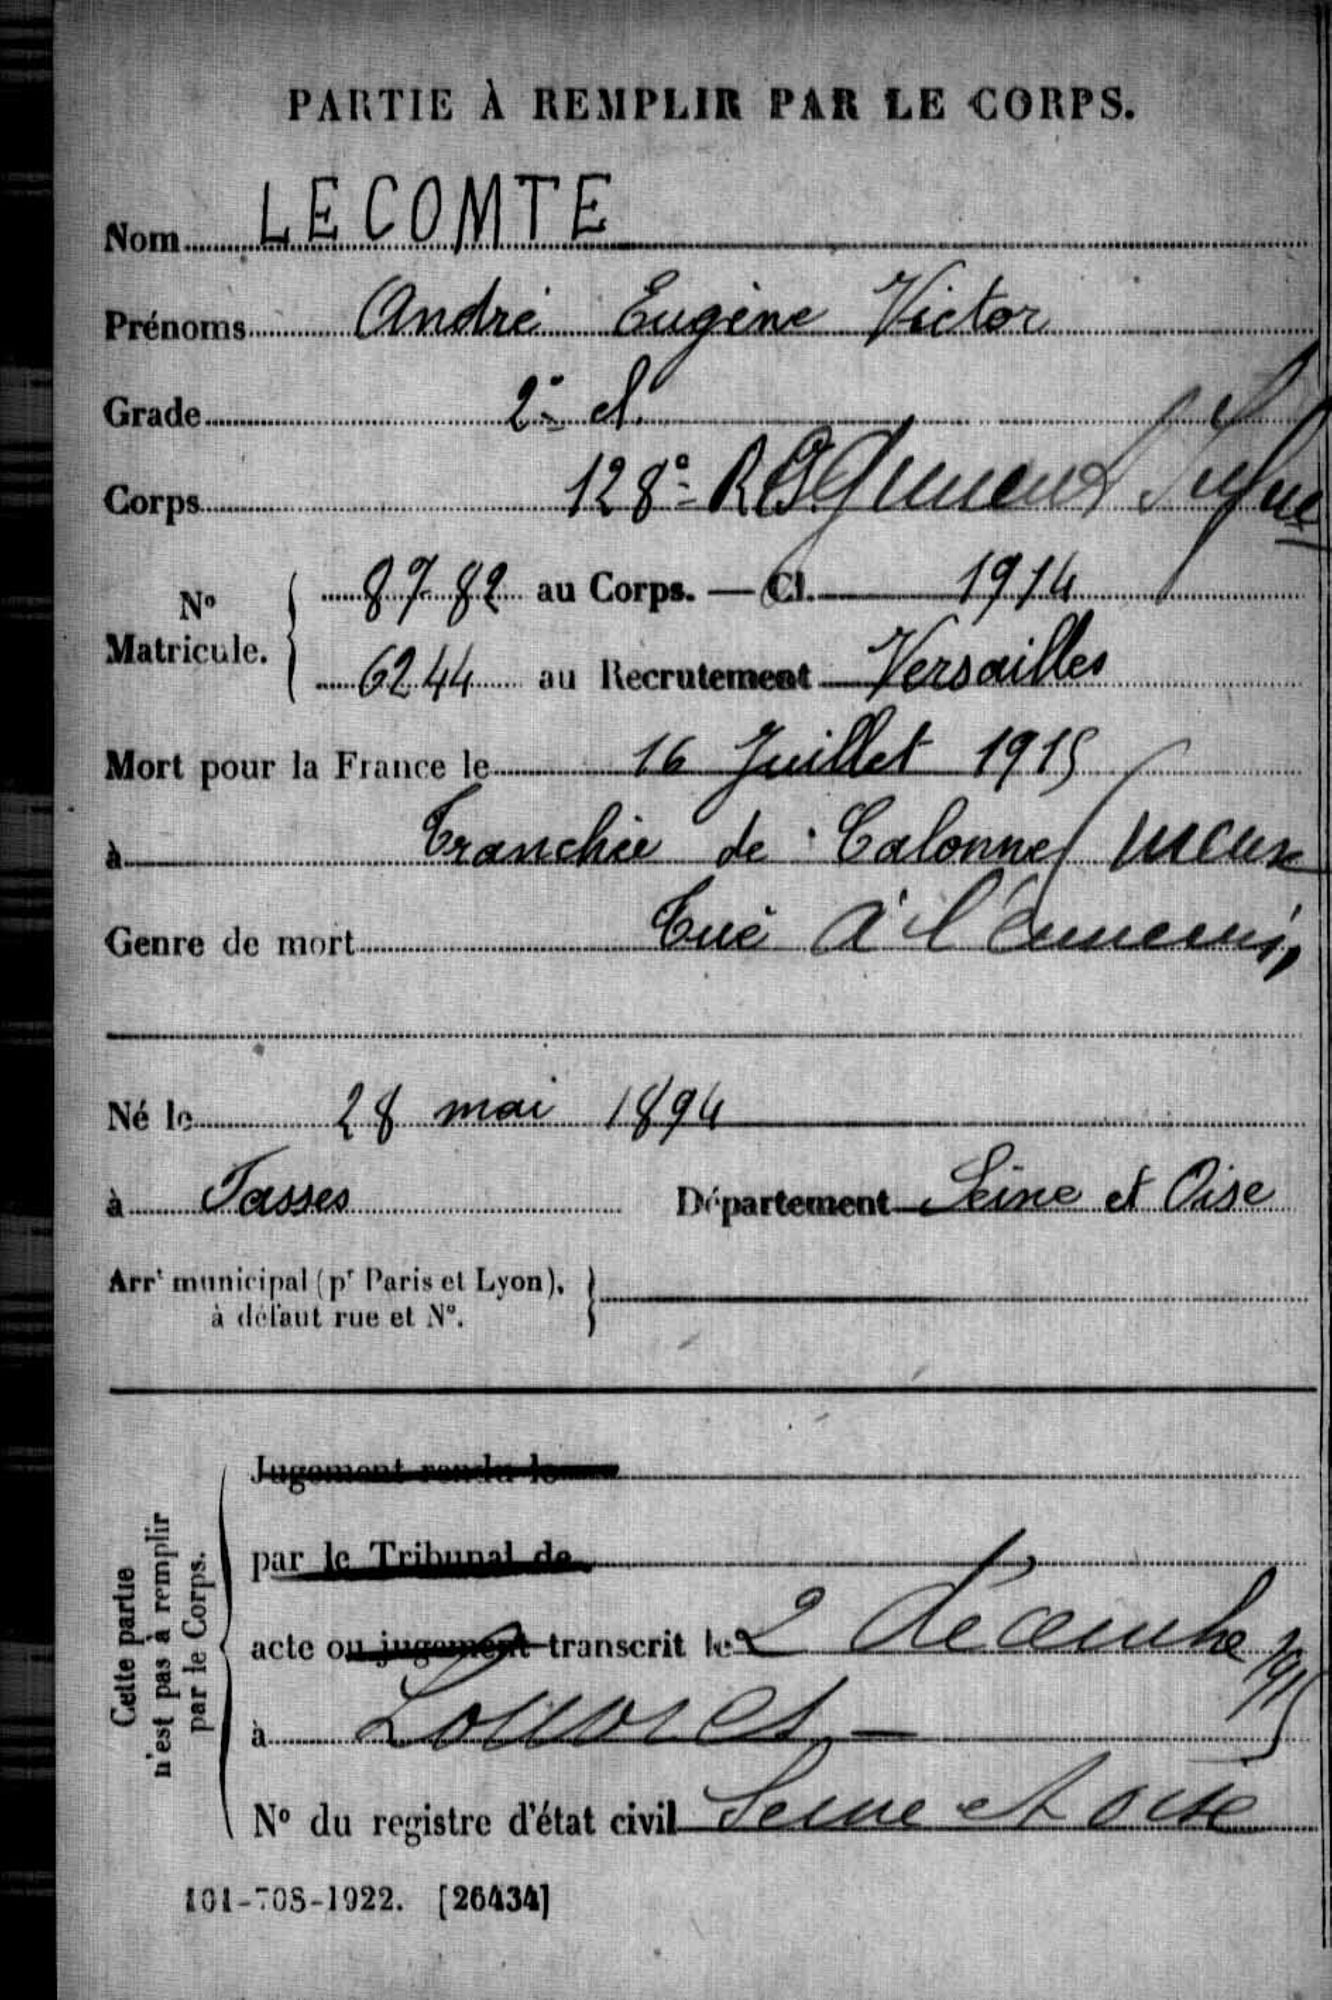 PARTIE À REMPLIR PAR LE CORPS.
Nom LECOMTE
Prénoms André Eugène Victor
Grade 2e cl.
Corps 128e Régiment Inf
No Matricule. 8782 au Corps. — Cl. 1914
6244 au Recrutement Versailles
Mort pour la France le 16 Juillet 1915
à Tranchée de Calonne (Meuse
Genre de mort Tué à l'ennemi,
Né le 28 mai 1894
à Fosses Département Seine et Oise
Arrt municipal (pr Paris et Lyon),
à défaut rue et No.
Cette partie
n'est pas à remplir
par le Corps.
Jugement rendu le
par le Tribunal de
acte ou jugement transcrit le 2 décembre 1915
à Louvres
No du registre d'état civil Seine et Oise
101-708-1922. [26434]